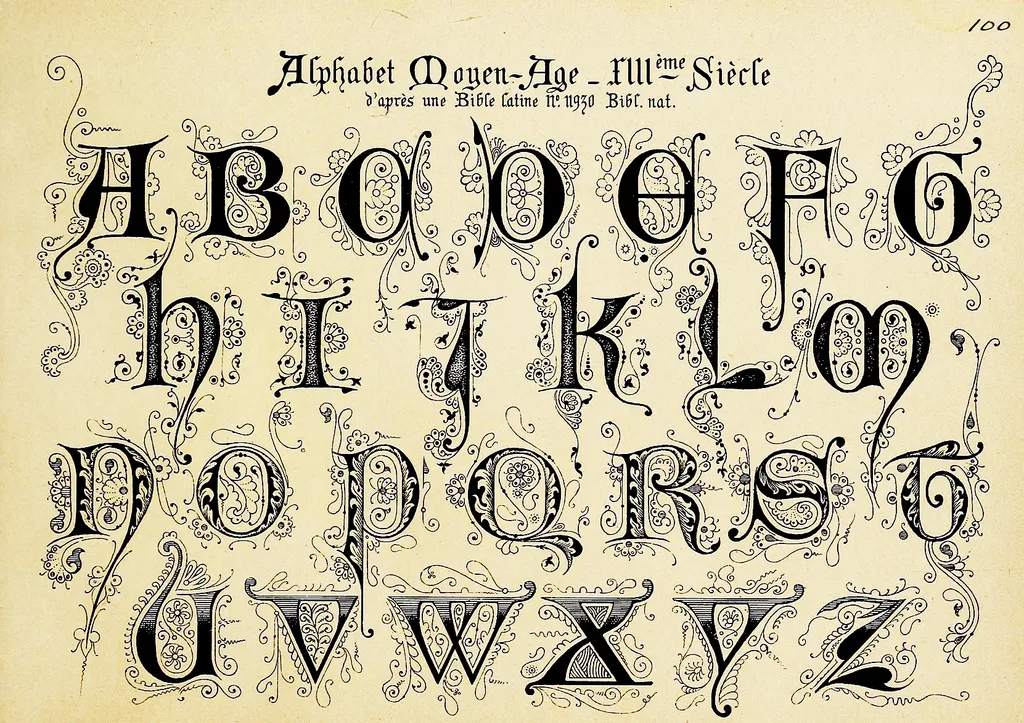 100
Alphabet Moyen-Age _ XIIIème Siècle
d'après une Bible latine No 11930 Bibl. nat.
A B C D E F G
h I J K L M
N O P Q R S T
U V W X Y Z